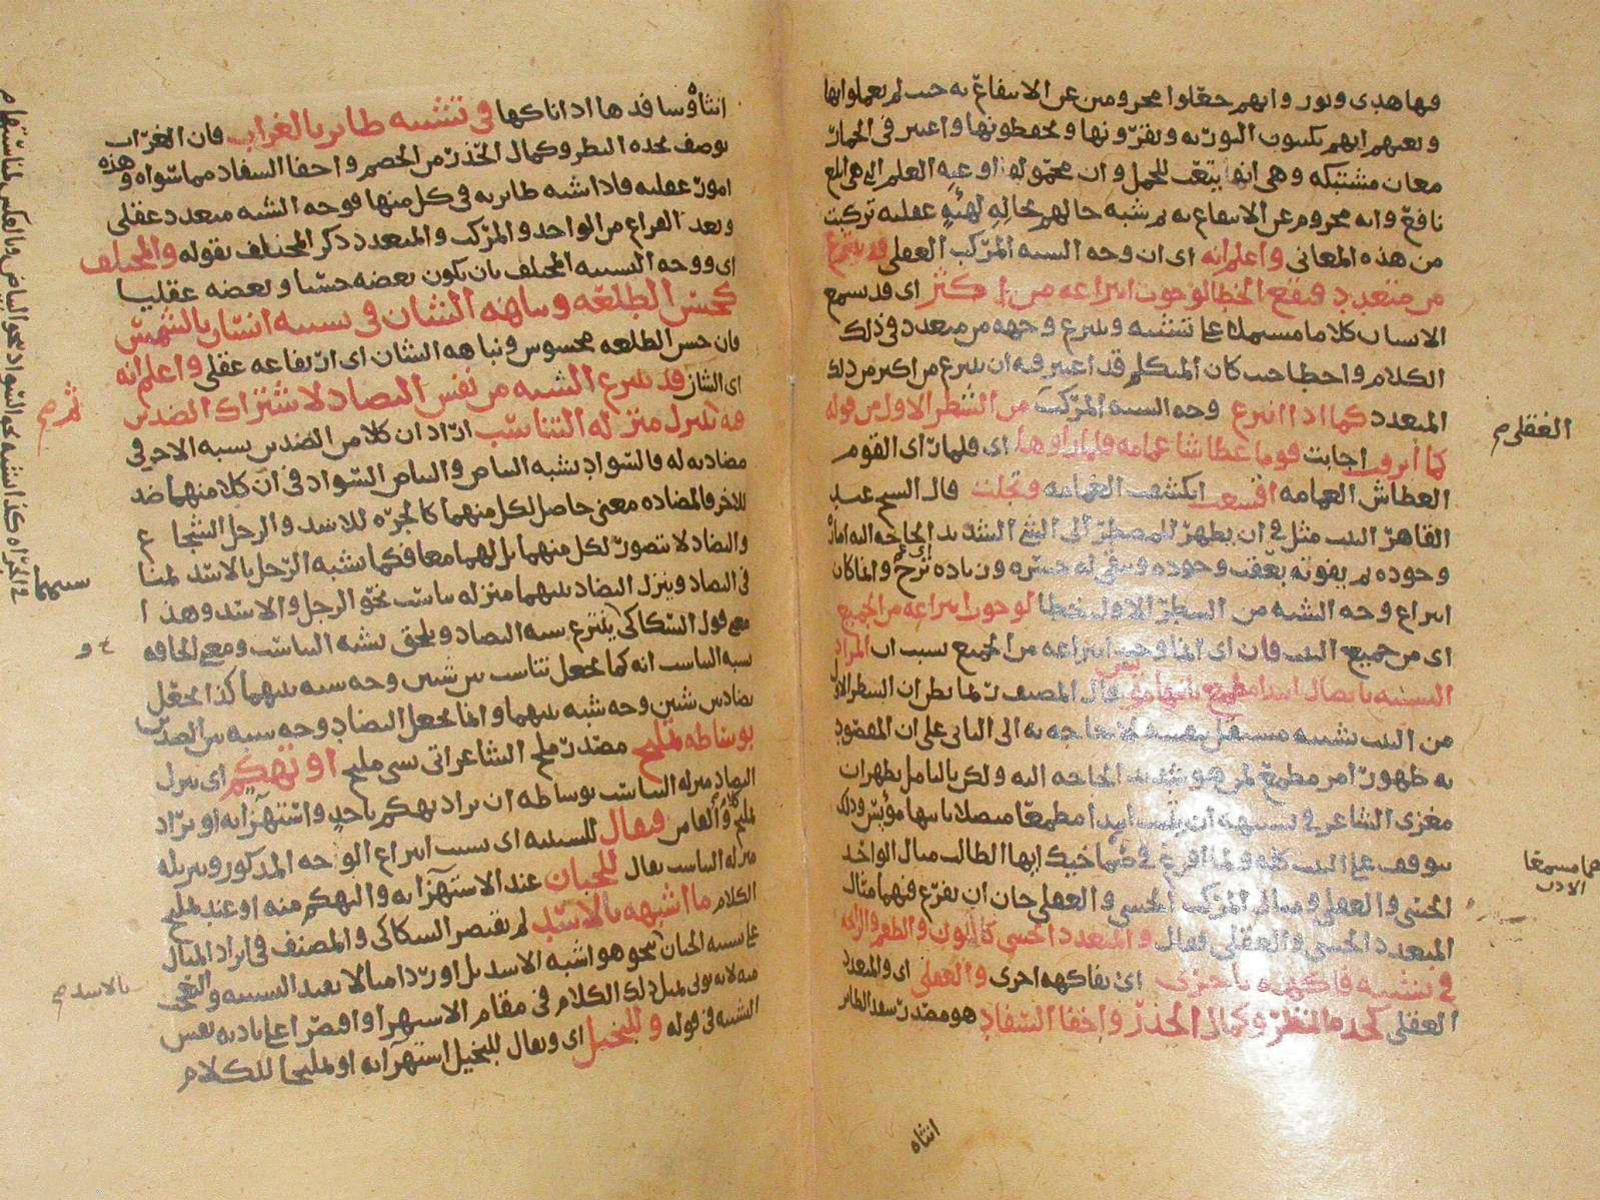 فيها هدى ونور وانهم جعلوا محرومين عن الانتفاع به حيث لم يعملوا بها
معان مشتبكه وهي انها
نافع وانه محروم عن الانتفاع به ثم شبه حالهم بحاله لهيئه عقليه تركبت
من هذه المعاني واعلم انه اي ان وجه الشبه المركب العقلي قد ينتزع
من متعدد فيقع الخطا لوجوب انتزاعه من اكثر اي قد يسمع
الانسان كلاما مشتملا على تشبيه وينتزع وجهه من متعدد في ذلك
الكلام واخطا حيث كان المتكلم قد اعتبر فيه ان ينتزع من اكثر من ذلك
المتعدد كما اذا انتزع وجه الشبه المركب من الشطر الاول من قوله
كما ابرقت قوما عطاشا غمامه فلما راوها اي فلما راى القوم
العطاش الغمامه اقشعت انكشفت الغمامه وتجلت قال الشيخ عبد
القاهر البيت مثل في ان يظهر للمضطر الى الشي الشديد الحاجه اليه اماره
وجوده ثم يفوته
انتزاع وجه الشبه من الشطر الاول خطا لوجوب انتزاعه من الجميع
اي من جميع البيت فان اي انما وجب انتزاعه من الجميع بسبب ان المراد
التشبيه باتصال ابتدا مطمع بانتها مؤيس قال المصنف ربما يظن ان الشطر الاول
من البيت تشبيه مستقل بنفسه لا حاجه به الى الثاني على ان المقصود
به ظهور امر مطمع لمن هو شديد الحاجه اليه ولكن بالتامل يظهر ان
مغزى الشاعر في تشبيهه ان يثبت ابتدا مطمعا متصلا بانتها مؤيس وذلك
يتوقف على البيت كله ولما افرغ في صماخيك ايها الطالب مثال الواحد
الحسي والعقلي ومثال المركب الحسي والعقلي حان ان يفرغ فيهما مثال
المتعدد الحسي والعقلي فقال والمتعدد الحسي كاللون والطعم والرائحه
في تشبيه فاكهه باخرى اي بفاكهه اخرى والعقلي اي والمتعدد
العقلي كحده النظر وكمال الحذر واخفا السفاد هو مصدر سفد الطائر
انثاه
العقلي
انثاه وسافدها اذا ناكها في تشبيه طاير بالغراب فان الغراب
يوصف بحده النظر وكمال الحذر من الخصم واخفا السفاد مما سواه وهذه
امور عقليه فاذا شبه طاير به في كل منها فوجه الشبه متعدد عقلي
وبعد الفراغ من الواحد والمركب والمتعدد ذكر المختلف بقوله والمختلف
اي ووجه التشبيه المختلف بان يكون بعضه حسيا وبعضه عقليا
كحسن الطلعه ونباهه الشان في تشبيه انسان بالشمس
فان حسن الطلعه محسوس ونباهه الشان اي ارتفاعه عقلي واعلم انه
اي الشان قد ينتزع الشبه من نفس التضاد لاشتراك الضدين
فيه ثم ينزل منزله التناسب اراد ان كلا من الضدين يشبه الاخر في
مضادته له فالسواد يشبه البياض والبياض السواد في ان كلا منهما ضد
للاخر فالمضاده معنى حاصل لكل منهما كالجرءه للاسد والرجل الشجاع
والتضاد لا يتصور لكل منهما بل لهما معا فكما يشبه الرجل بالاسد
في التضاد وينزل التضاد بينهما منزله تناسب نحو الرجل والاسد وهذا
معنى قول السكاكي ينتزع شبه التضاد ويلحق بشبه التناسب ومعنى الحاقه
بشبه التناسب انه كما يجعل تناسب بين شيئين وجه شبه بينهما كذا يجعل
تضاد بين شيئين وجه شبه بينهما وانما يجعل التضاد وجه شبه بين الضدين
بوساطه تمليح مصدر ملح الشاعر اتى بشي مليح او تهكم اي ينزل
التضاد منزله التناسب بوساطه ان يراد تهكم باحد واستهزا به او يراد
فيقال للتشبيه اي بسبب انتزاع الوجه المذكور وتنزيله
منزله التناسب يقال للجبان عند الاستهزا به والتهكم منه او عند تمليح
الكلام ما اشبهه بالاسد لم يقتصر السكاكي والمصنف في ايراد المثال
على تشبيه الجبان بنحو هو اشبه الاسد بل اوردا مثالا يفيد التشبيه والتعجب
منه لانه يؤتى بمثل ذلك الكلام في مقام الاستهزا
التشبيه في قوله وللبخيل اي ويقال للبخيل استهزا به او تمليحا للكلام
بالاسد